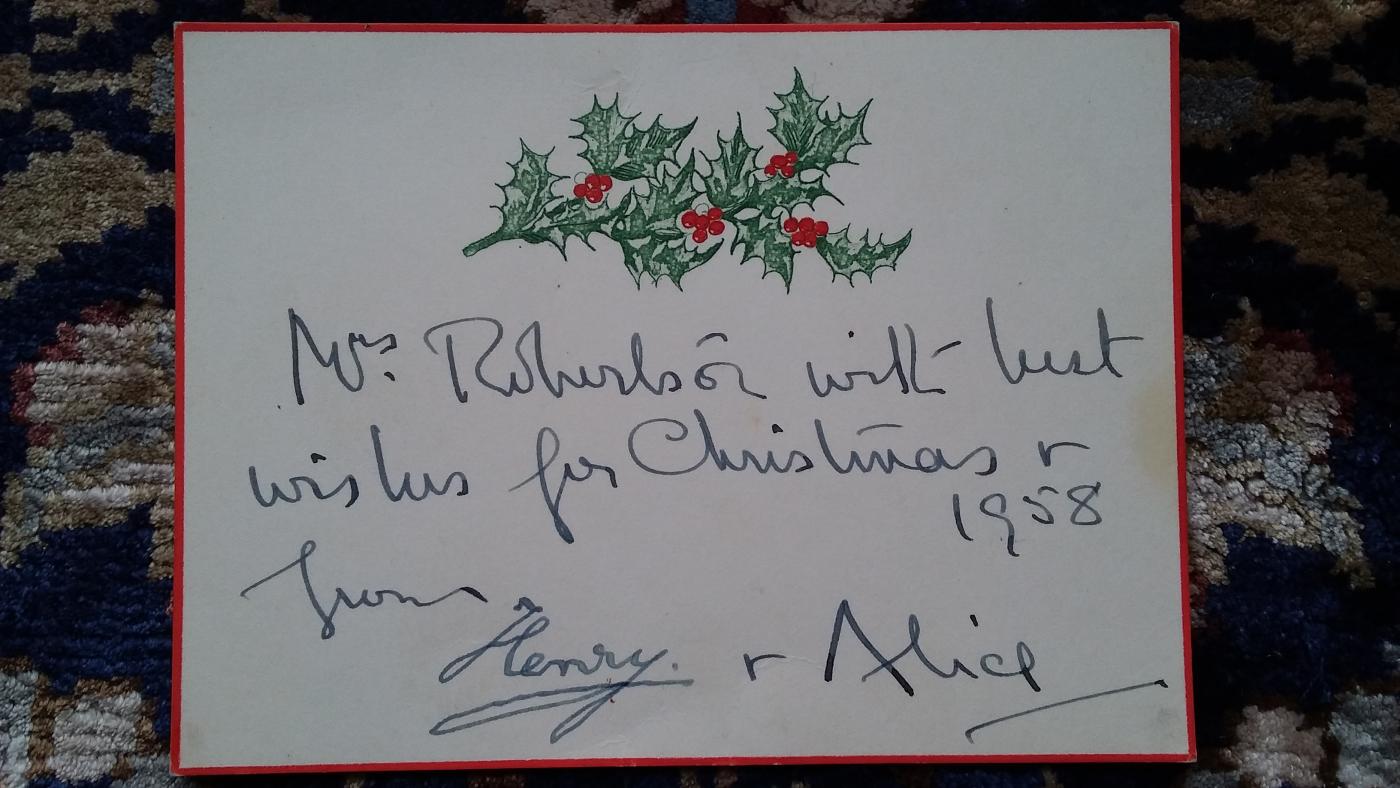 Mrs. Robertson with best
wishes for Christmas &
1958
from
Henry. & Alice